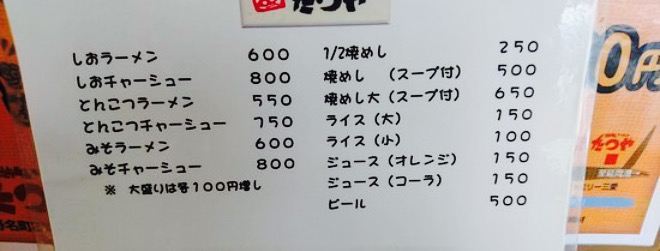 たつや
しおラーメン 600
しおチャーシュー 800
とんこつラーメン 550
とんこつチャーシュー 750
みそラーメン 600
みそチャーシュー 800
※ 大盛りは各100円増し
1/2焼めし 250
焼めし (スープ付) 500
焼めし大 (スープ付) 650
ライス (大) 150
ライス (小) 100
ジュース (オレンジ) 150
ジュース (コーラ) 150
ビール 500
0円
たつや